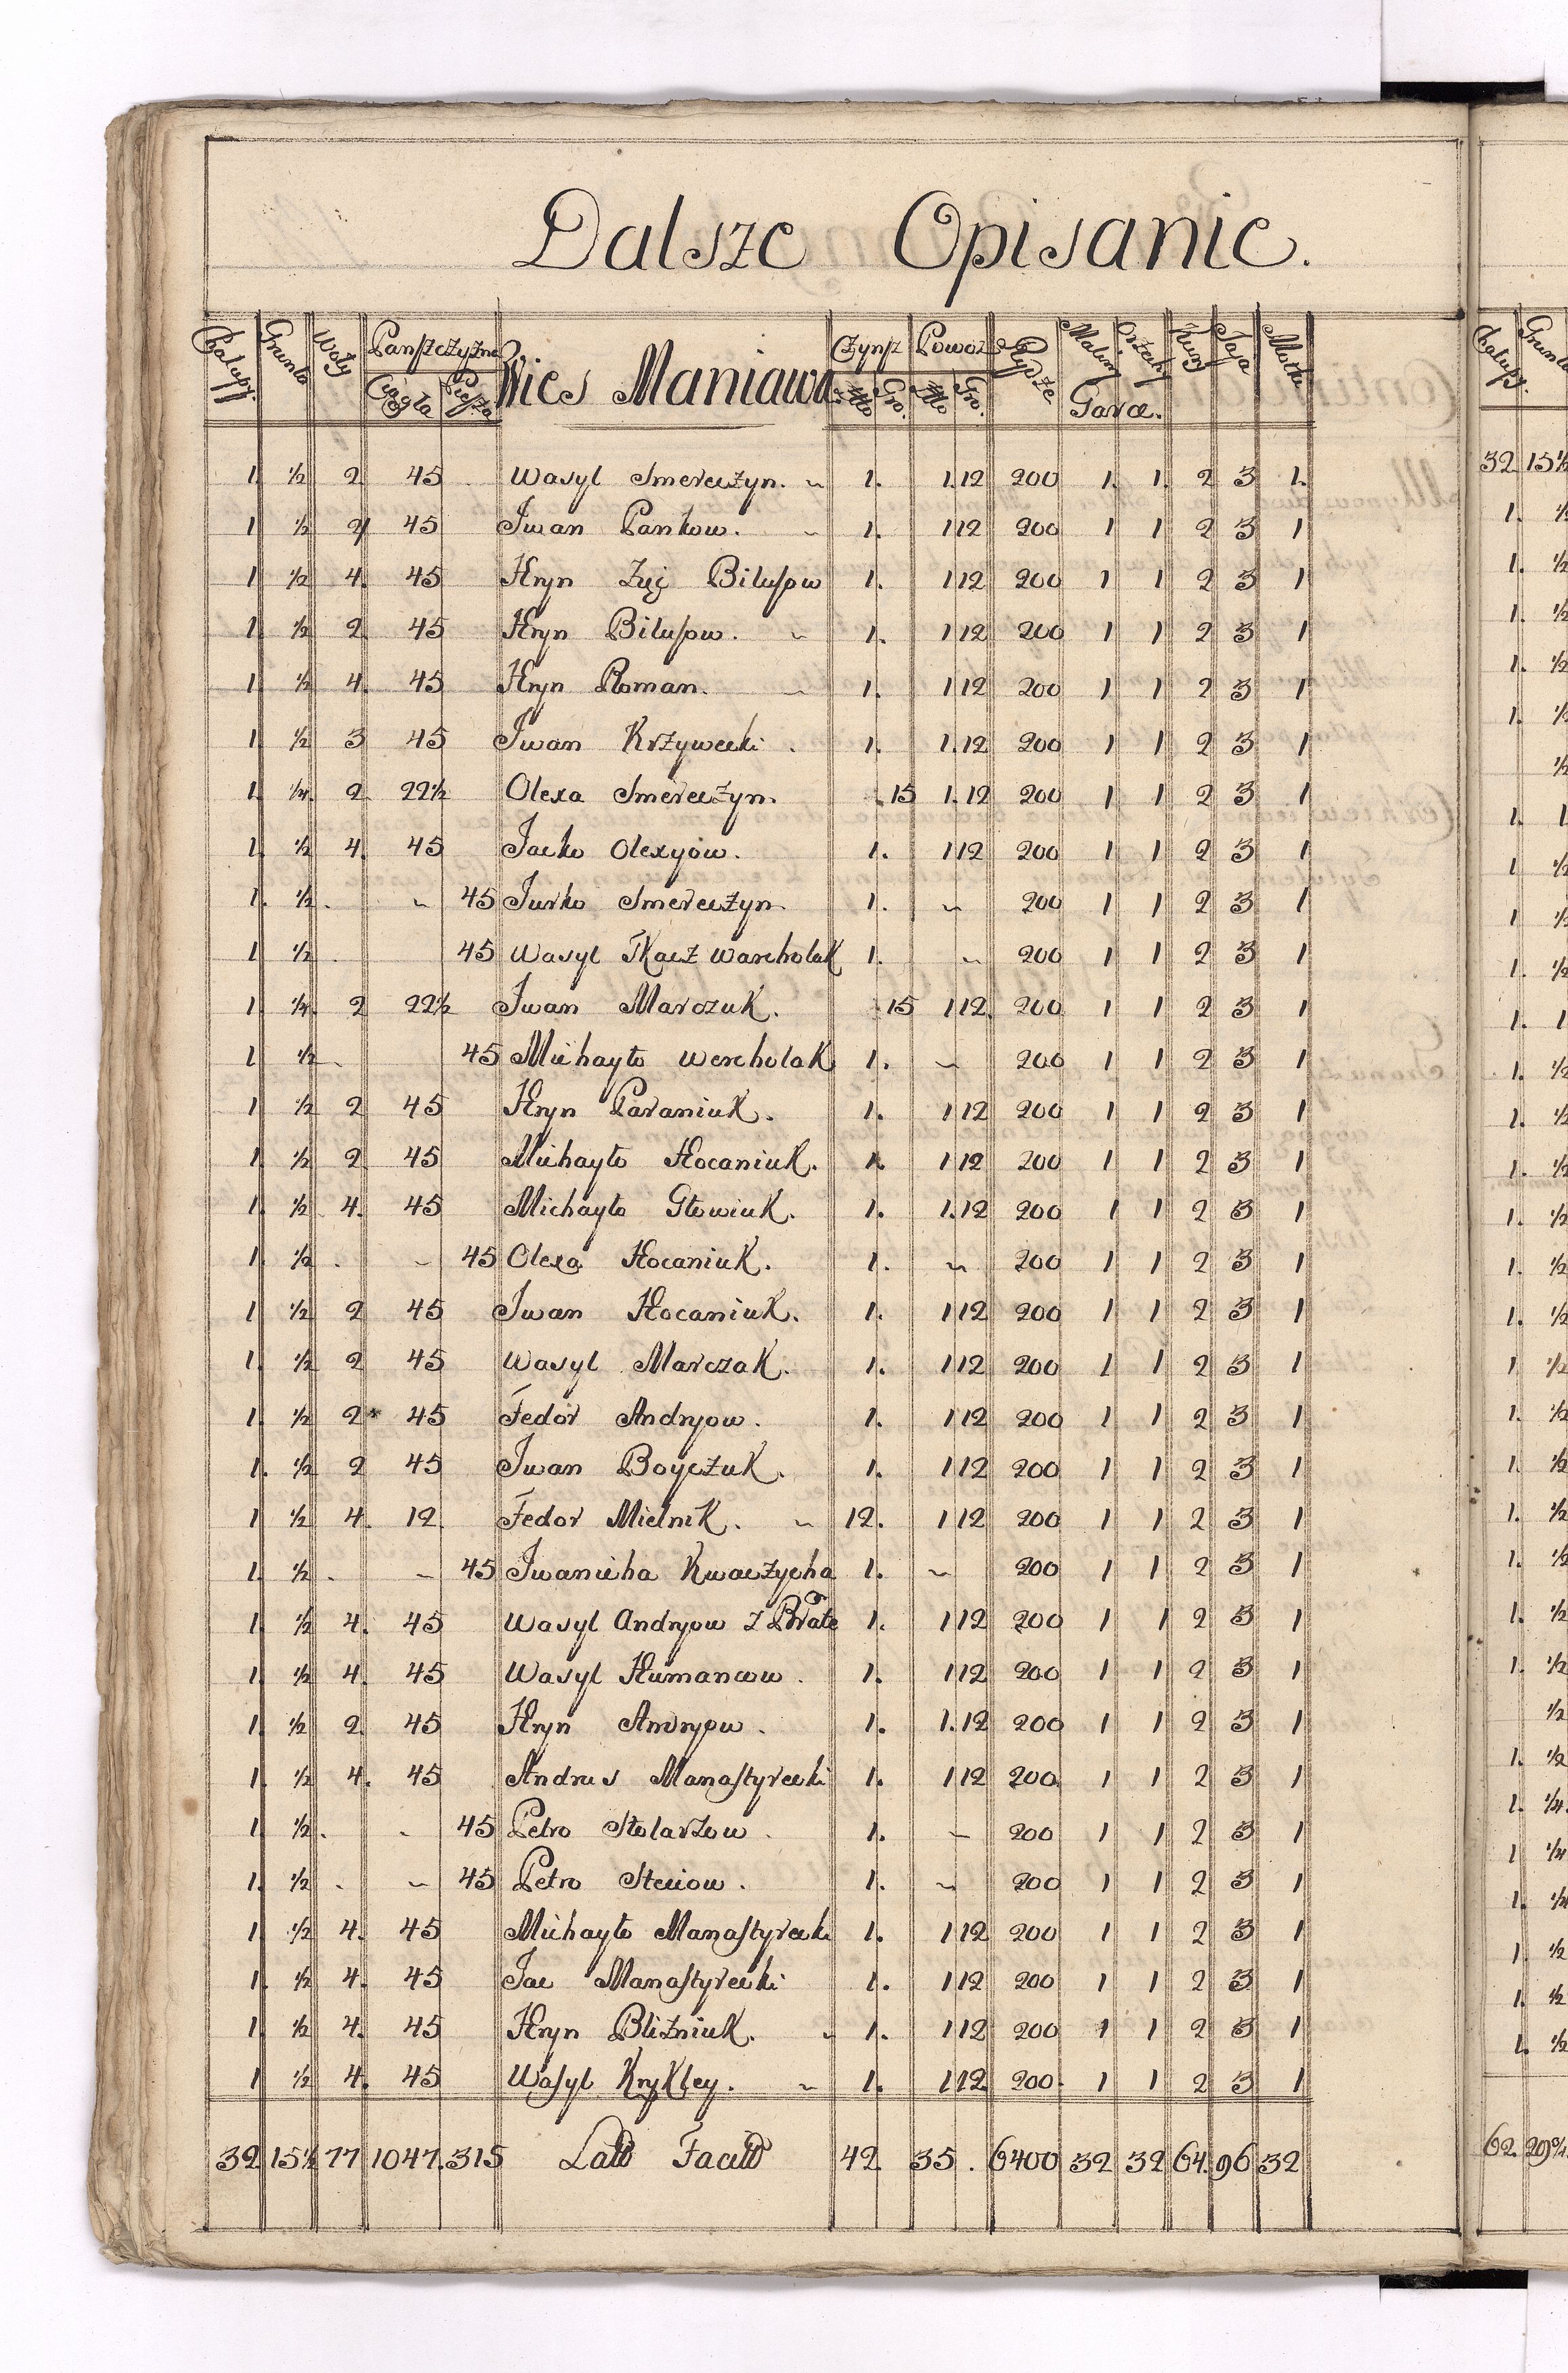 Dalsze Opisanie.
Chałupy Grunta Woły Panszczyzna Wies Maniawa Czynsz Powoz Rydze Maliny Orzechy Kury Jaja Motki
Ciągła Piesza Zło Gro. Zło Gro. Garce.
1 ½ 2 45 Wasyl Smereczyn. ~ 1. 1.12 200 1. 1. 2 3 1.
1 ½ 2 45 Iwan Pankow. ~ 1. 1 12 200 1 1 2 3 1
1 ½ 4. 45 Hryn Zięć Bilusow 1. 1 12 200 1 1 2 3 1
1 ½ 2. 45 Hryn Bilusow. ~ 1. 1 12 200 1 1 2 3 1
1 ½ 4. 45 Hryn Roman. ~ 1. 1 12 200 1 1 2 3 1
1 ½ 3 45 Iwan Krzywecki. 1. 1.12 200 1 1 2 3 1
1 ¼. 2 22½ Olexa Smereczyn. 15 1.12 200 1 1 2 3 1
1 ½ 4. 45 Jacko Olexyow. 1. 1 12 200 1 1 2 3 1
1. ½. ~ 45 Jurko Smereczyn. 1. ~ 200 1 1 2 3 1
1 ½. 45 Wasyl Tkacz Warcholak 1. ~ 200 1 1 2 3 1
1 ¼. 2 22½ Iwan Marczuk. 15 1 12. 200 1 1 2 3 1
1 ½ ~ 45 Michayło Wercholak 1. ~ 200 1 1 2 3 1
1 ½ 2 45 Hryn Paraniuk. 1. 1 12 200 1 1 2 3 1
1 ½ 2 45 Michayło Hocaniuk. 1. 1 12 200 1 1 2 3 1
1 ½ 4. 45 Michayło Głowiuk. 1. 1.12 200 1 1 2 3 1
1 ½ . ~ 45 Olexa Hocaniuk. 1. ~ 200 1 1 2 3 1
1 ½ 2 45 Iwan Hocaniuk. 1. 1 12 200 1 1 2 3 1
1. ½ 2 45 Wasyl Marczak. 1. 1 12 200 1 1 2 3 1
1 ½ 2 45 Fedor Andryow. 1. 1 12 200 1 1 2 3 1
1. ½ 2 45 Iwan Boyczuk. 1. 1 12 200 1 1 2 3 1
1 ½ 4. 12. Fedor Mielnik. ~ 12. 1 12 200 1 1 2 3 1
1. ½ . ~ 45 Iwanicha Kwaczycha 1. ~ 200 1 1 2 3 1
1 ½ 4. 45 Wasyl Andryow z Brate 1. 1 12 200 1 1 2 3 1
1 ½ 4. 45 Wasyl Humancow. 1. 1 12 200 1 1 2 3 1
1. ½ 2. 45 Hryn Andryow. 1. 1.12 200 1 1 2 3 1
1. ½ 4. 45 Andrus Manastyrecki 1. 1 12 200. 1 1 2 3 1
1 ½. ~ 45 Petro Stolarzow. 1. ~ 200 1 1 2 3 1
1. ½ . ~ 45 Petro Steciow. 1. ~ 200 1 1 2 3 1
1 ½ 4. 45 Michayło Manastyrecki 1. 1 12 200 1 1 2 3 1
1. ½ 4. 45 Jac Manastyrecki 1. 1 12 200 1 1 2 3 1
1 ½ 4. 45 Hryn Bliżniuk. ~ 1. 1 12 200 1 1 2 3 1
1 ½ 4. 45 Wasyl Krykley. ~ 1. 1 12. 200. 1 1 2 3 1
32 15½ 77 1047. 315 Latt Facitt 42. 35. 6400 32 32 64. 96 32